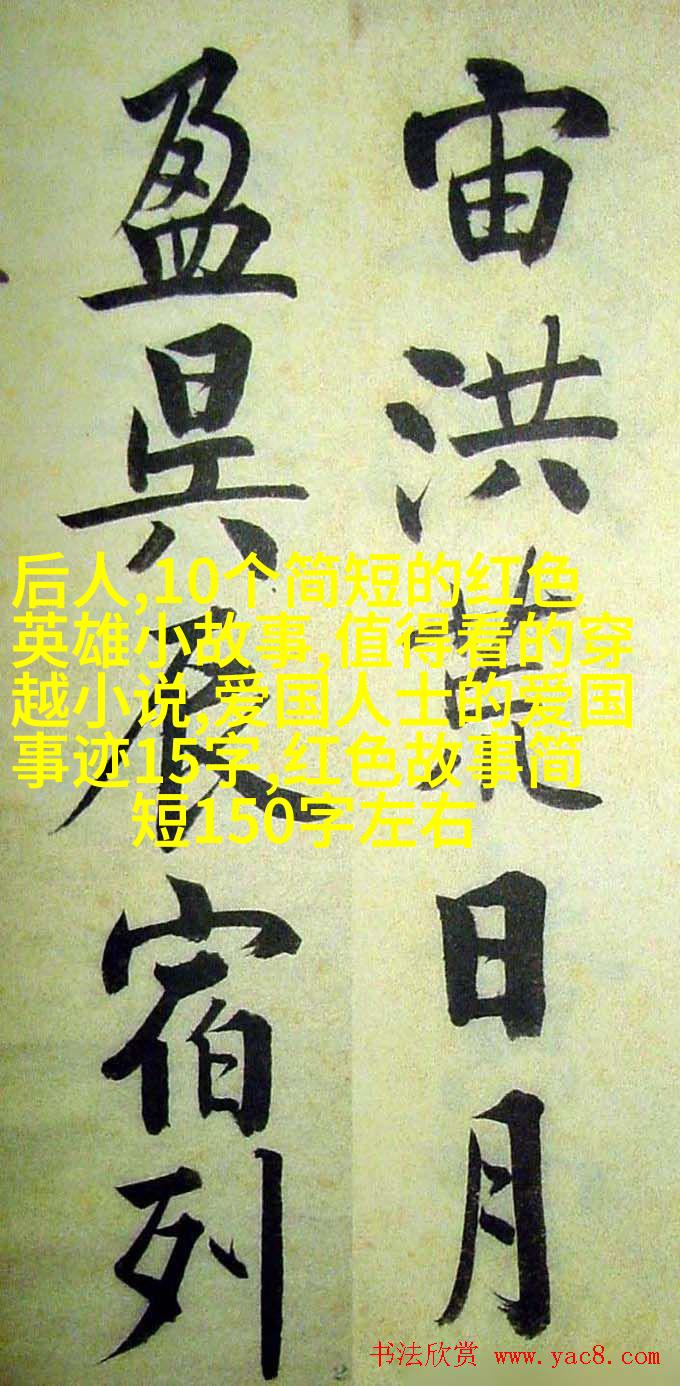 宙洪荒日月
盈昃辰宿列
后人,10个简短的红色
英雄小故事,值得看的穿
越小说,爱国人士的爱国
事迹15字,红色故事简
短150字左右
书法欣赏 www.yac8.com
2